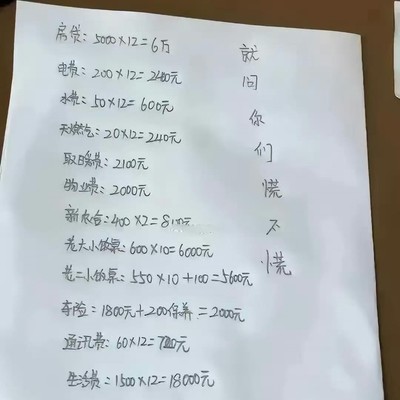 房贷：5000×12=6万
电费：200×12=2400元
水费：50×12=600元
天燃气：20×12=240元
取暖费：2100元
物业费：2000元
新农合：400×2=800元
老大小饭桌：600×10=6000元
老二小饭桌：550×10+100=5600元
车险：1800元+200保养=2000元
通讯费：60×12=720元
生活费：1500×12=18000元
就
问
你
们
慌
不
慌